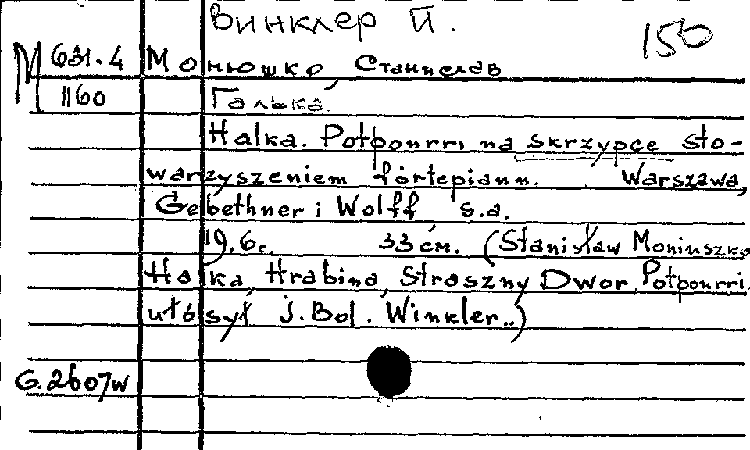 Винклер Й.
150
М 631.4 Монюшко, Станислав
1160 Галька.
Halka. Potpourri na skrzypce sto-
warzyszeniem fortepiann. Warszawa,
Gebethner i Wolff s.a.
19,6 с. 33 см. (Stanisław Moniuszko
Halka, Hrabina, Straszny Dwor. Potpourri.
ułósył J. Bol. Winkler..)
G.2607w